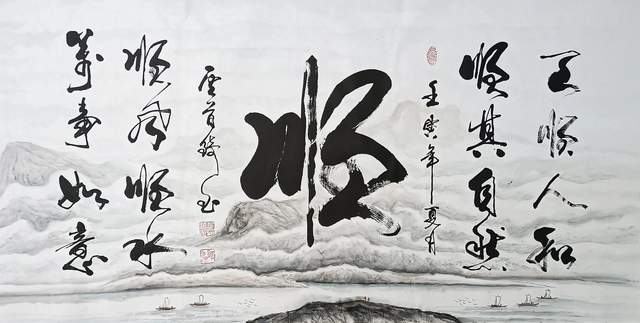 天顺人和
顺其自然
壬寅年夏月
顺
顺风顺水
萬事如意